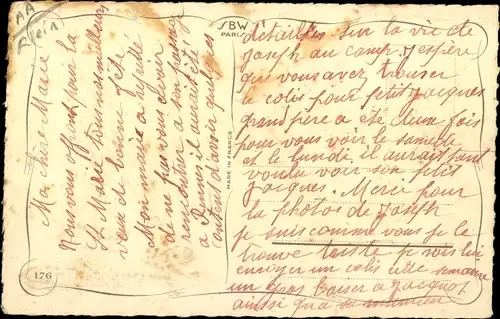 Ma chère Marie
Nous vous offrons pour la
St Marie tous nos meilleurs
vœux de bonne fête
Mon mimie a regretté
de ne pas vous avoir
rencontrer a son passage
a Rennes il aurait été
content d'avoir quelques
SBW
PARIS
MADE IN FRANCE
176
détailles sur la vie de
Joseph au camp. J'espère
que vous avez trouver
le colis pour petit Jacques
grand père a été deux fois
pour vous voir le samedi
et le lundi, il aurait tant
voulu voir son petit
Jacques. Merci pour
la photos de Joseph
je suis comme vous je le
trouve triste je vais lui
envoyer un colis cette semaine
un gros baiser a Jacquot
ainsi qu'a sa maman